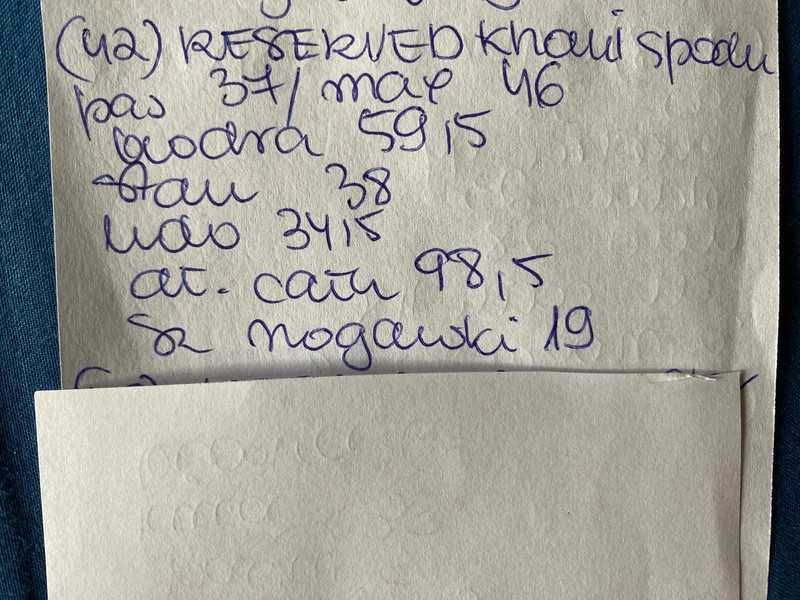 (42) RESERVED khaki spodu
pas 37/ max 46
biodra 59,5
stan 38
udo 34,5
dł. całk 98,5
sz nogawki 19